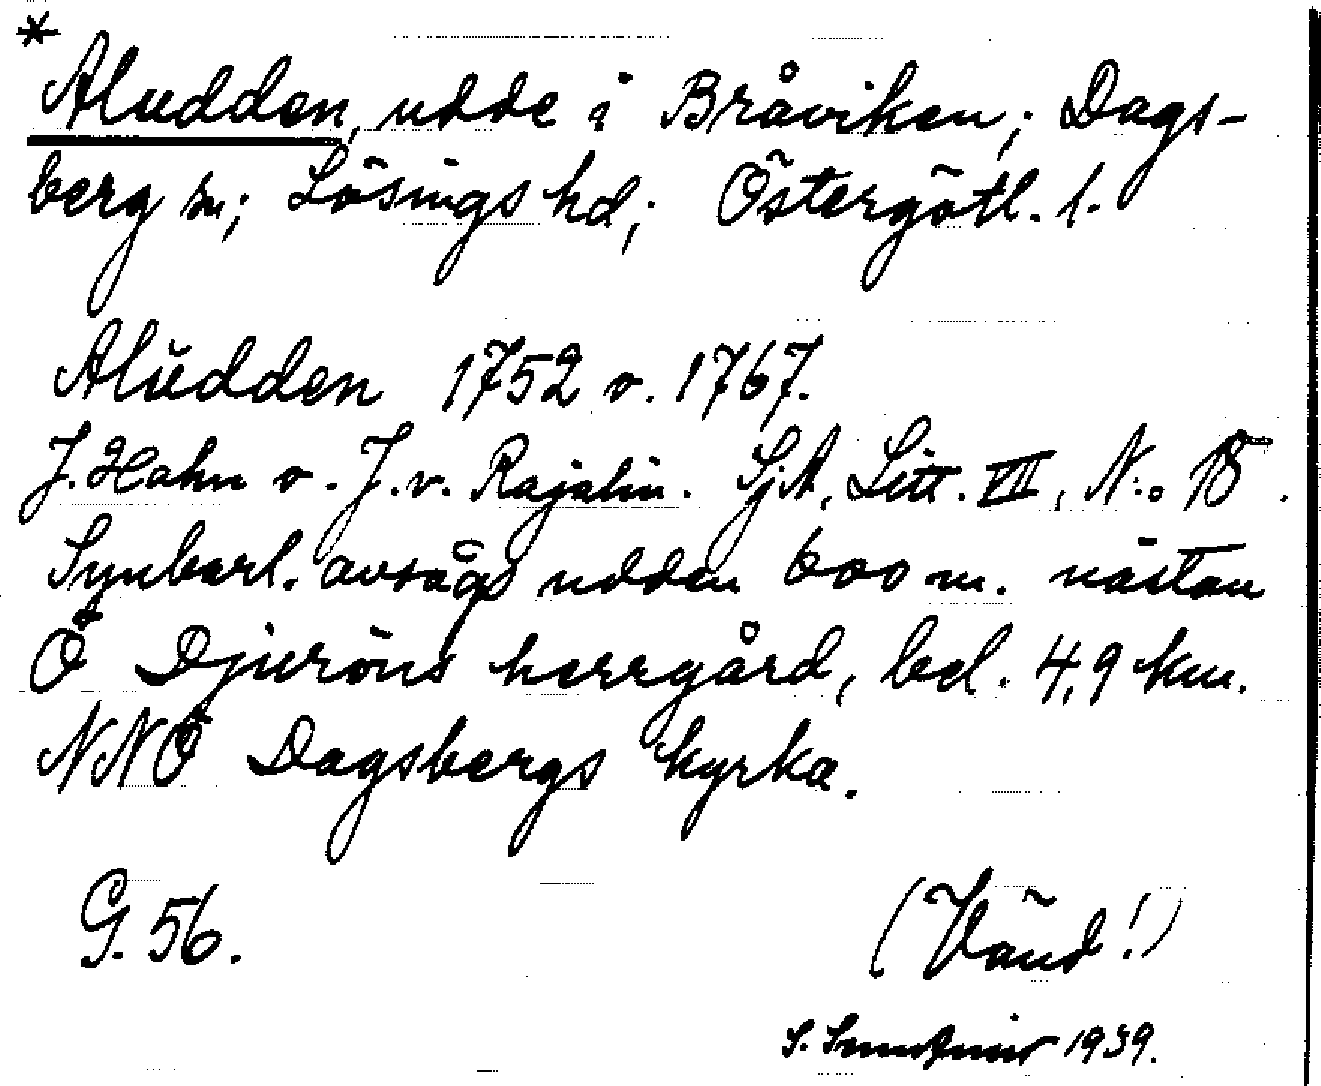 *
Aludden, udde i Bråviken; Dags-
berg sn; Lösings hd; Östergötl. l.
Alŭdden 1752 o. 1767.
J. Hahn o. J. v. Rajalin. SjA, Litt. VII, N:o 15.
Synbarl. avsåg udden 600 m. nästan
Ö Djuröns herrgård, bel. 4,9 km.
NNÖ Dagsbergs kyrka.
G. 56.
(Vänd!)
S. 1939.